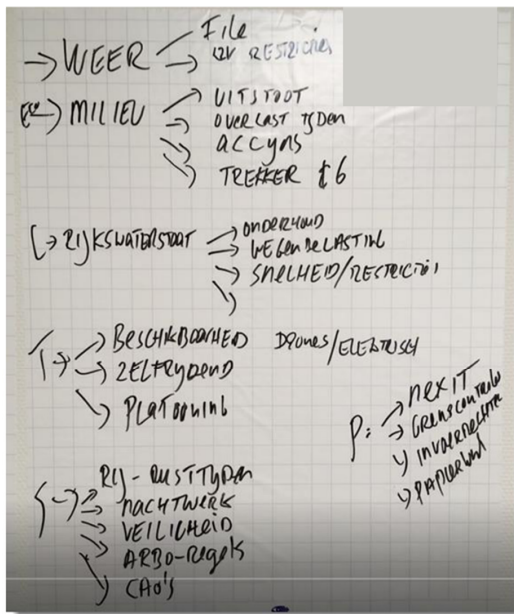 → WEER → File
→ LZV RESTRICTIES
→ MILIEU → UITSTOOT
→ OVERLAST TIJDEN
→ ACCYNS
→ TREKKER €6
L → RIJKSWATERSTAAT → ONDERHOUD
→ WEGENBELASTING
→ SNELHEID/RESTRICTIES
→
T → BESCHIKBAARHEID DRONES/ELEKTRISCH
→ ZELFRYDEND
→ PLATOONING
P: → NEXIT
→ GRENSCONTROLE
→ INVOERRECHTEN
→ PAPIERWINKEL
S → RIJ-RUSTTYDEN
→ NACHTWERK
→ VEILIGHEID
→ ARBO-Regels
→ CAO's